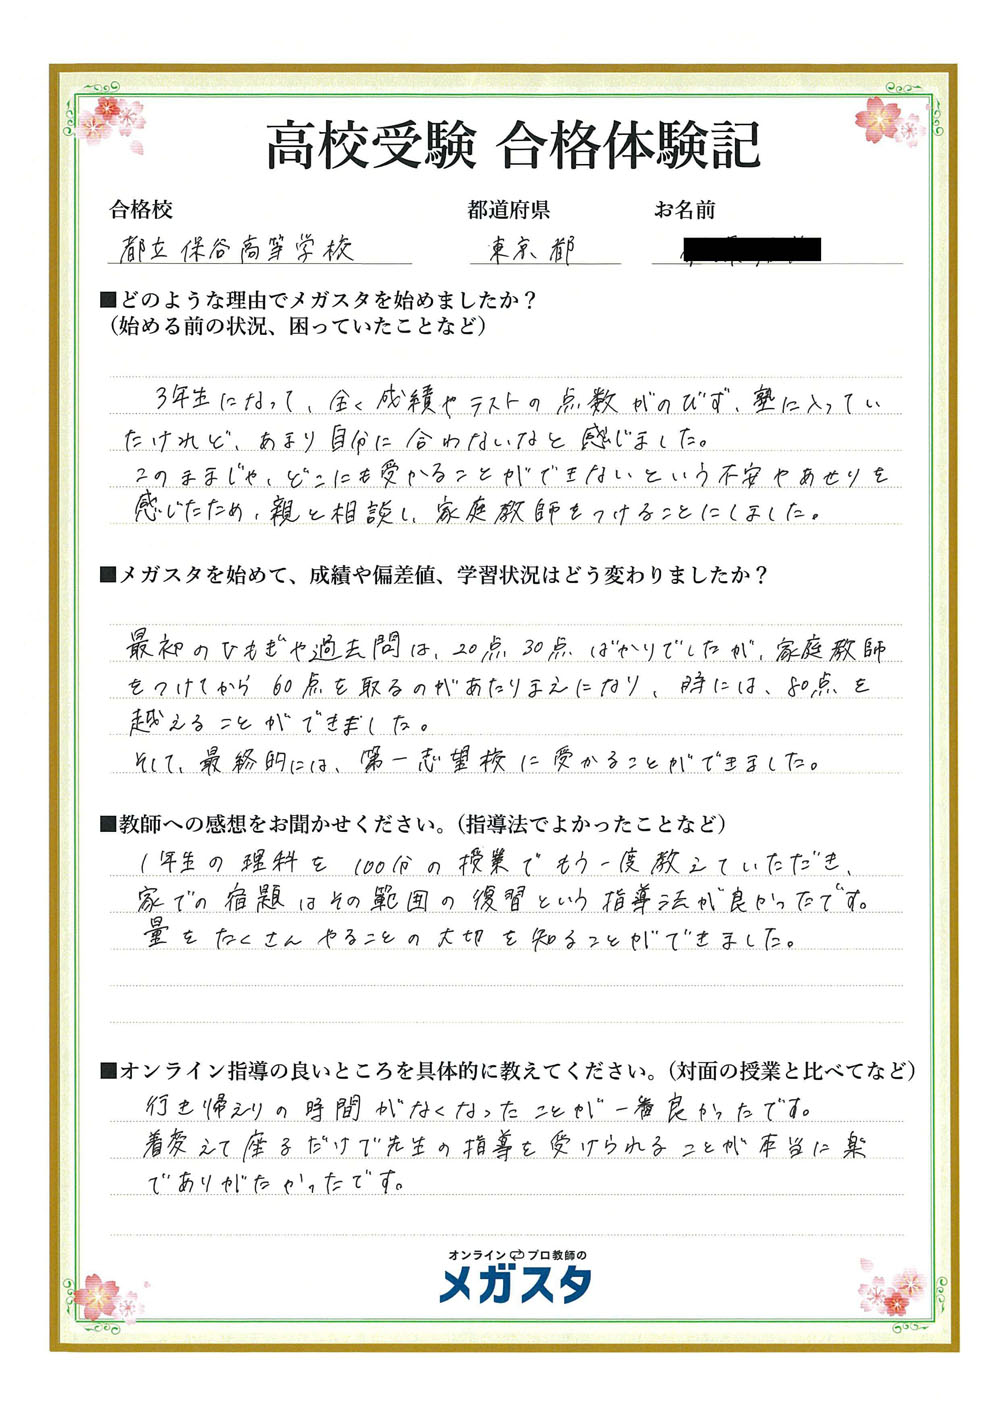 高校受験 合格体験記
合格校 都道府県 お名前
都立保谷高等学校 東京都
■どのような理由でメガスタを始めましたか？
（始める前の状況、困っていたことなど）
3年生になって、全く成績やテストの点数がのびず、塾に入ってい
たけれど、あまり自分に合わないなと感じました。
このままじゃ、どこにも受かることができないという不安やあせりを
感じたため、親と相談し、家庭教師をつけることにしました。
■メガスタを始めて、成績や偏差値、学習状況はどう変わりましたか？
最初のひもぎや過去問は、20点30点ばかりでしたが、家庭教師
をつけてから60点を取るのがあたりまえになり、時には、80点を
越えることができました。
そして、最終的には、第一志望校に受かることができました。
■教師への感想をお聞かせください。（指導法でよかったことなど）
1年生の理科を100分の授業でもう一度教えていただき、
家での宿題はその範囲の復習という指導法が良かったです。
量をたくさんやることの大切を知ることができました。
■オンライン指導の良いところを具体的に教えてください。（対面の授業と比べてなど）
行き帰えりの時間がなくなったことが一番良かったです。
着変えて座るだけで先生の指導を受けられることが本当に楽
でありがたかったです。
オンライン プロ教師の
メガスタ